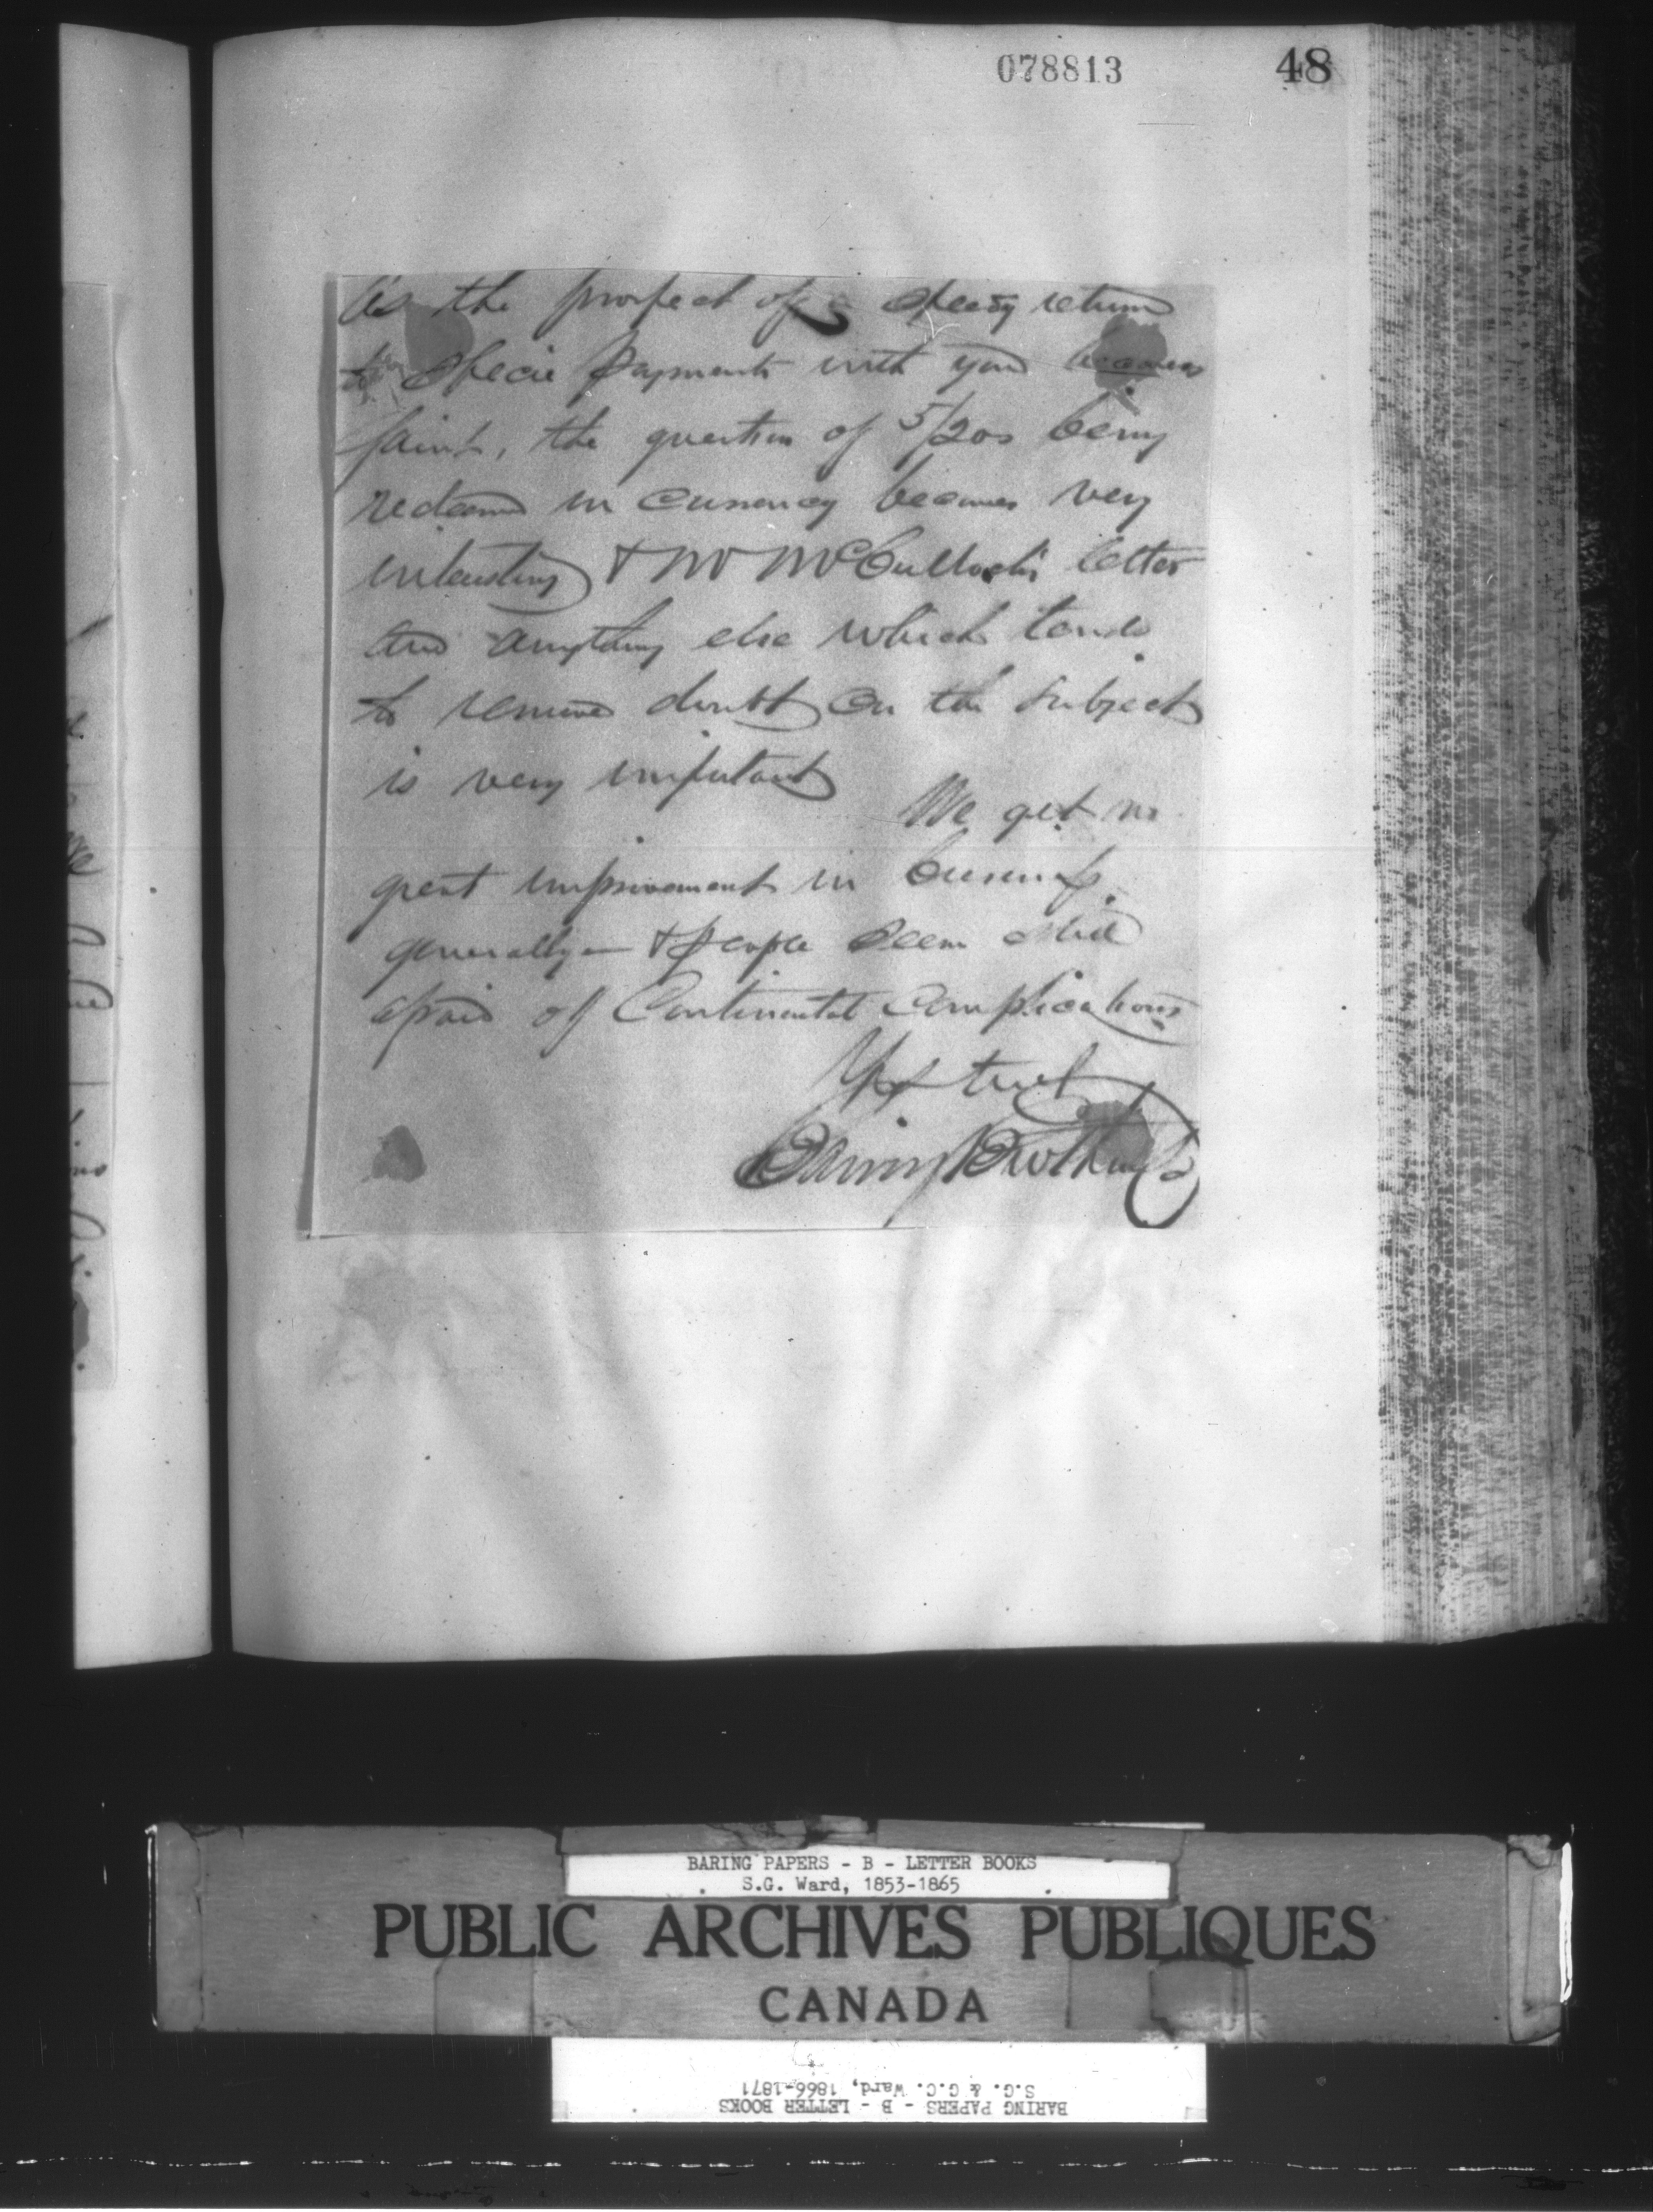 078813 48
As the prospect of a speedy return
to Specie payments with you becomes
faint, the question of 5/20s being
redeemed in currency becomes very
interesting & Mr McCulloch's letter
and anything else which tends
to remove doubt on the subject
is very important
We get no
great improvement in business
generally & people seem still
afraid of Continental complications
Yrs truly
Baring Brothers
BARING PAPERS - B - LETTER BOOKS
S.G. Ward, 1853-1865
PUBLIC ARCHIVES PUBLIQUES
CANADA
BARING PAPERS - B - LETTER BOOKS
S.G. & G.C. Ward, 1866-1871